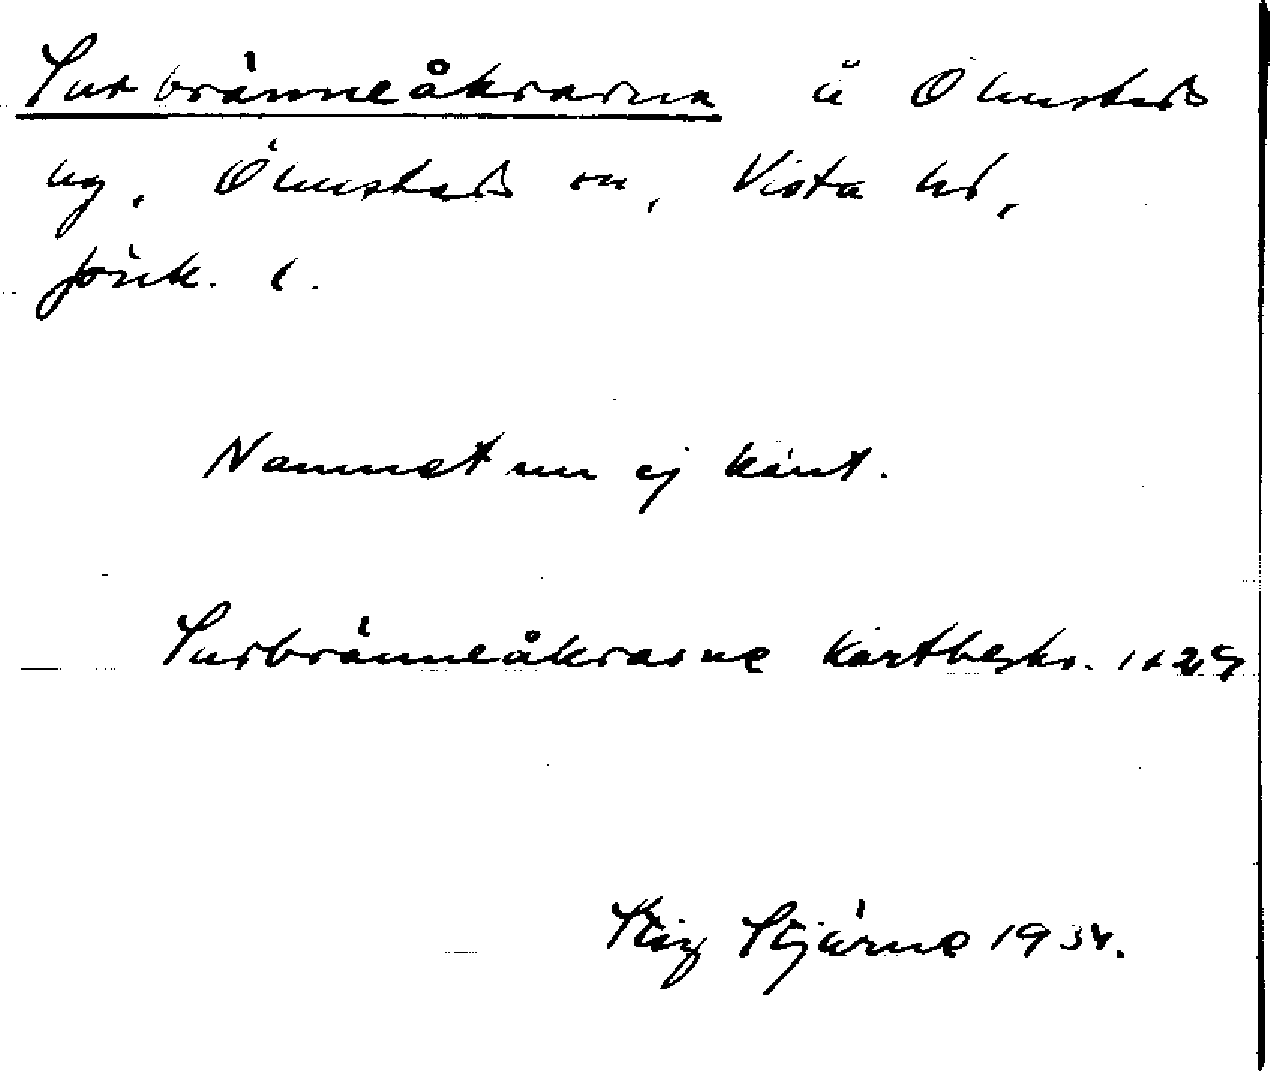 Surbränneåkrarna å Ölmstads
by, Ölmstads sn, Vista hd,
Jönk. l.
Namnet nu ej känt.
Surbränneåkrarne Kartbeskr. 1829
Stig Stjärne 1934.